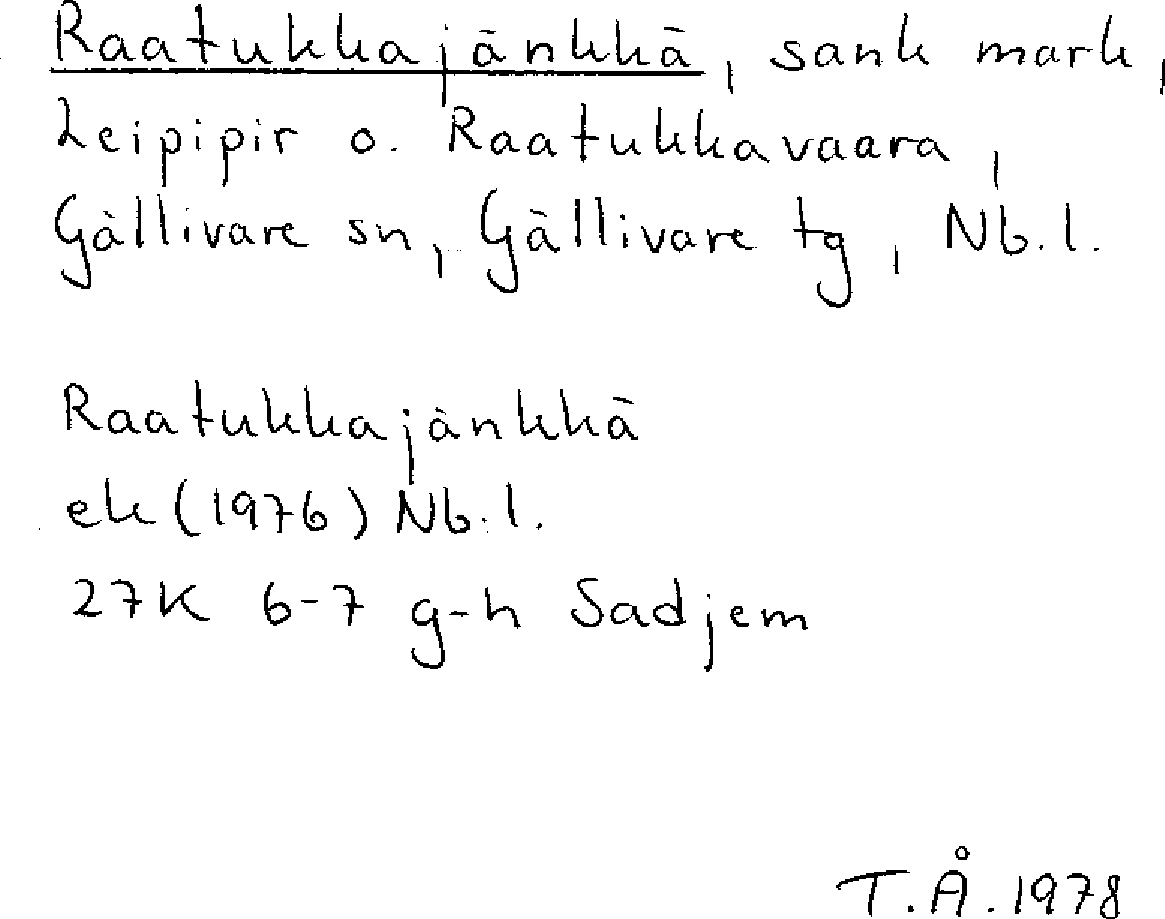 Raatukkajänkkä, sank mark,
Leipipir o. Raatukkavaara,
Gällivare sn, Gällivare tg, Nb.l.
Raatukkajänkkä
ek (1976) Nb.l.
27K 6-7 g-h Sadjem
T.Å. 1978